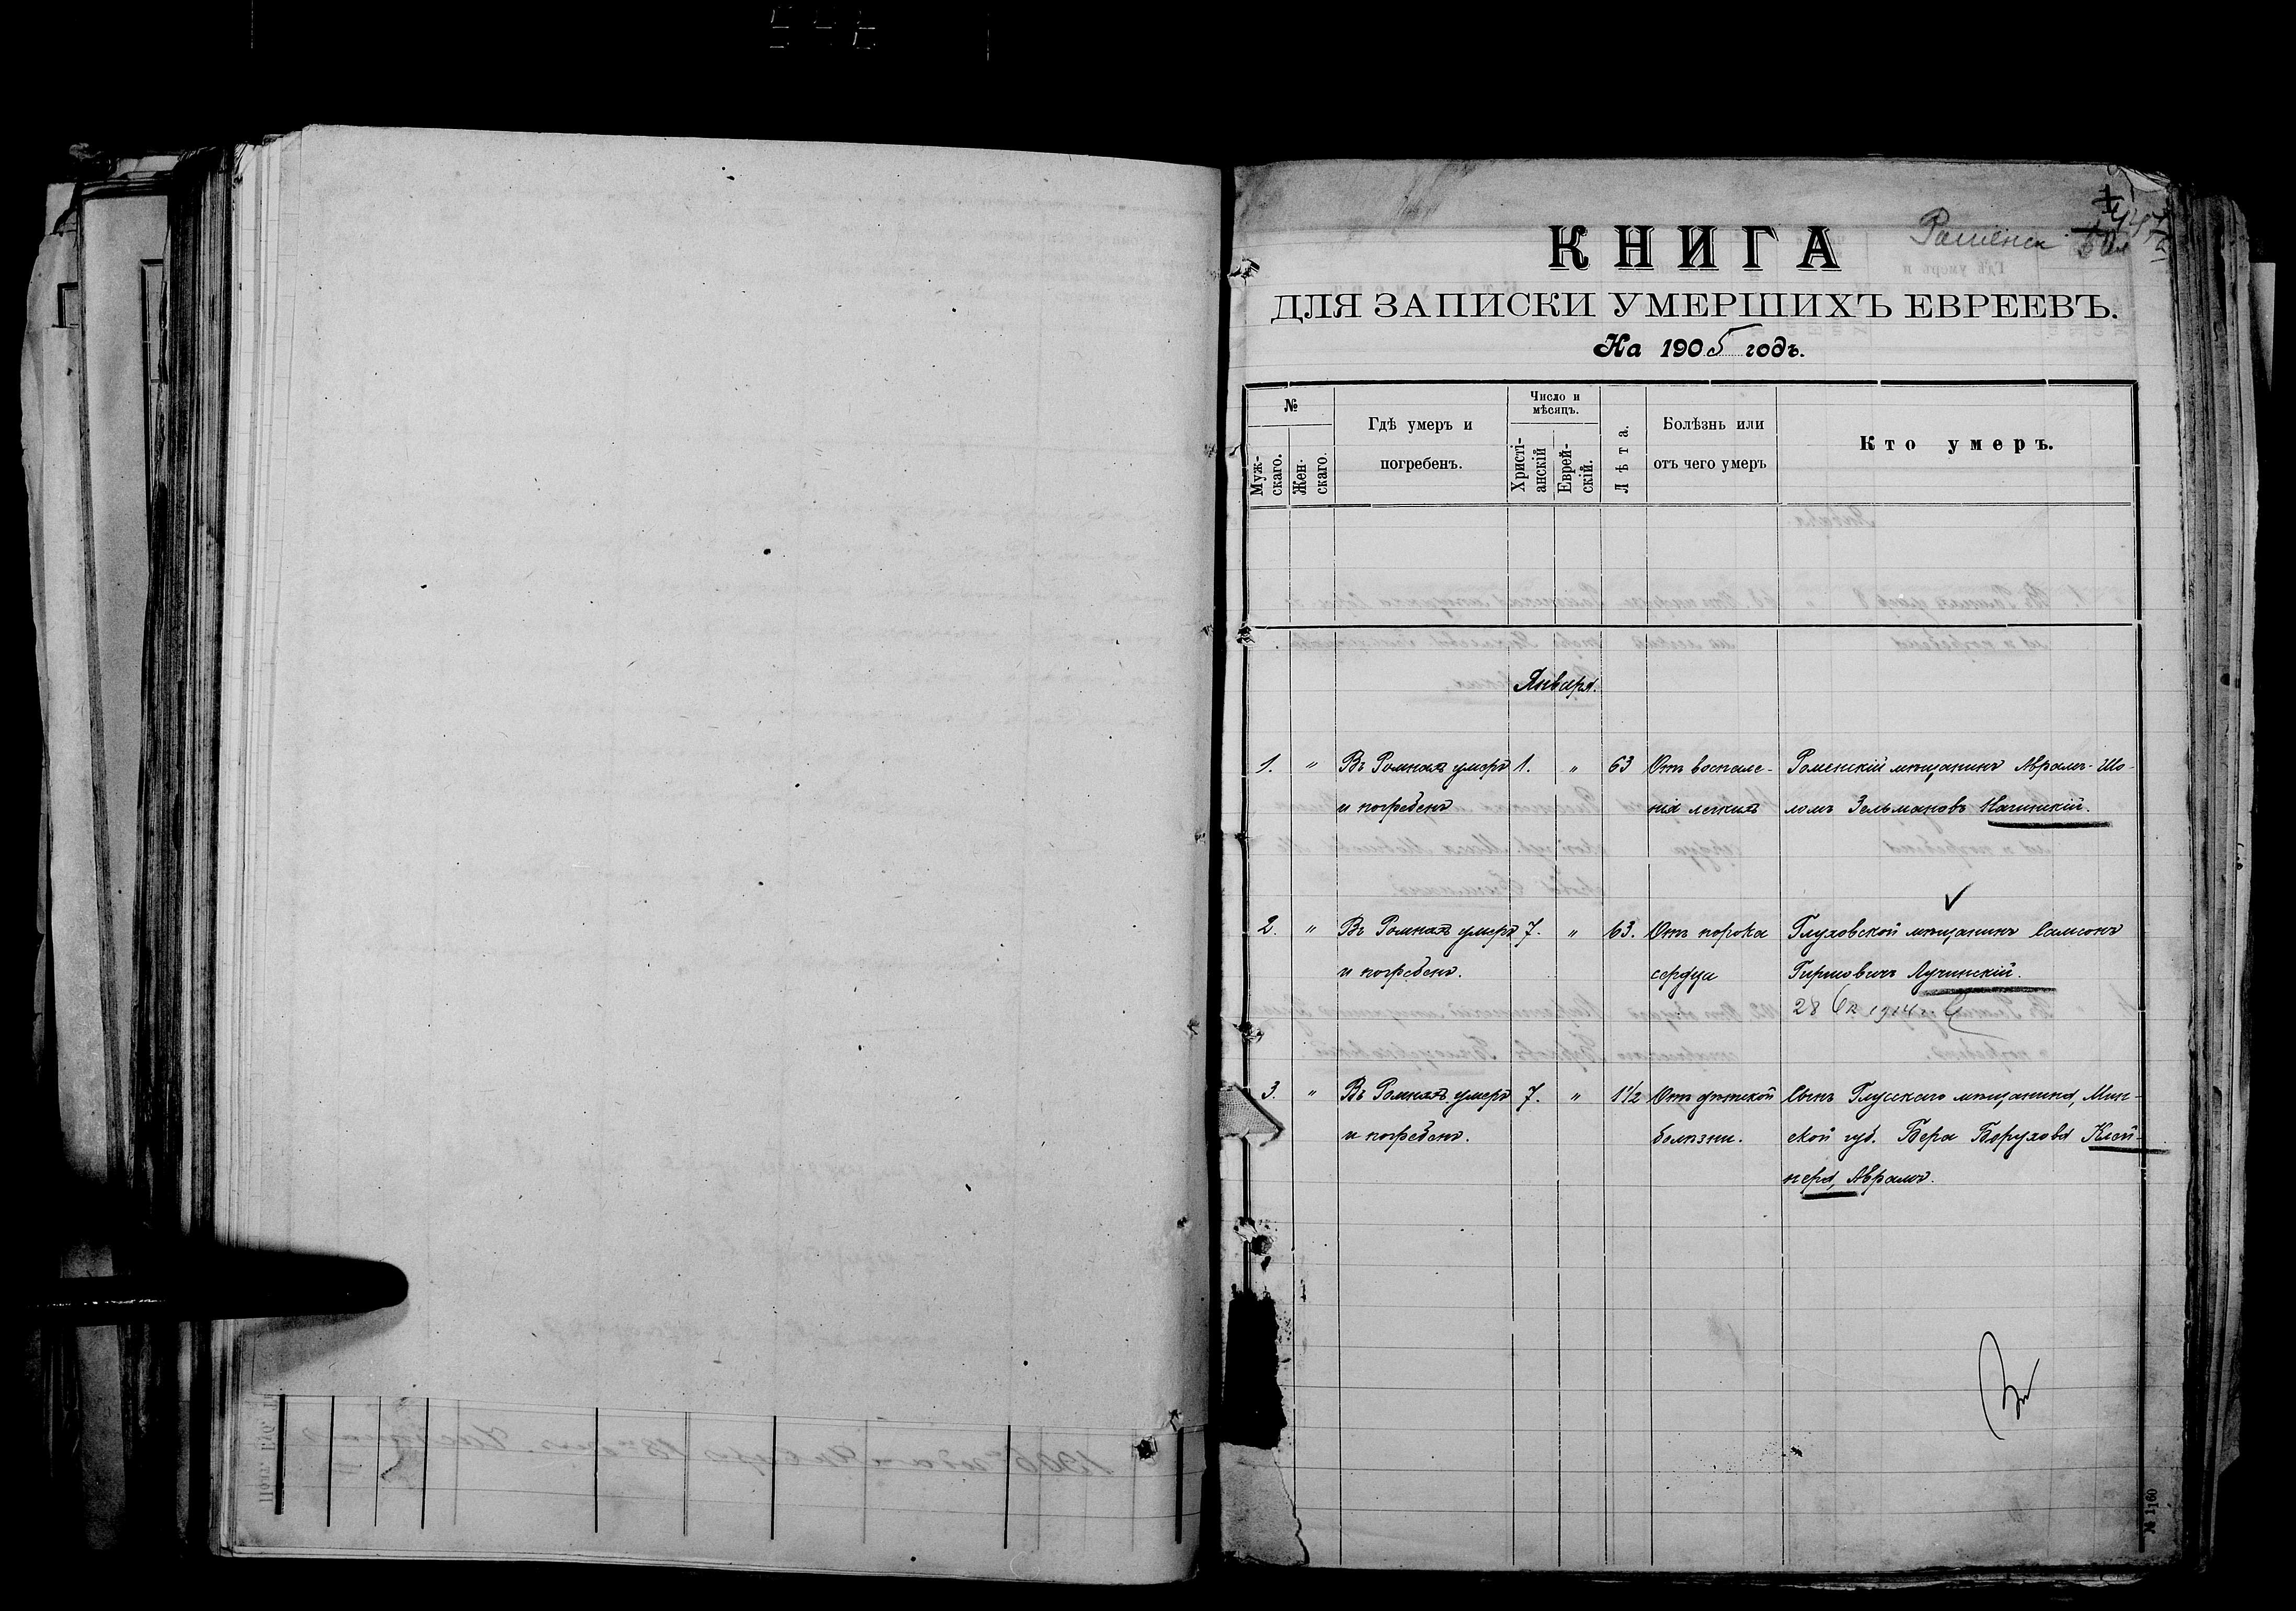 КНИГА
ДЛЯ ЗАПИСКИ УМЕРШИХЪ ЕВРЕЕВЪ.
На 1905 годъ.
№
Муж-
скаго.
Жен-
скаго.
Гдѣ умеръ и
погребенъ.
Число и
мѣсяцъ.
Христі-
анскій
Еврей-
скій.
Лѣта.
Болѣзнь или
отъ чего умеръ
Кто умеръ.
Января.
1. " Въ Ромнахъ умеръ 1. " 63 Отъ воспале- Роменскій мѣщанинъ Аврамъ-Шо-
и погребенъ нія легкихъ ломъ Зельмановъ Нагинскій.
2. " Въ Ромнахъ умеръ 7. " 63. Отъ порока Глуховской мѣщанинъ Самсонъ
и погребенъ. сердца Гиршовичъ Лучинскій.
28 1914 г.
3. " Въ Ромнахъ умеръ 7. " 1½ Отъ дѣтской Сынъ Глусскаго мѣщанина, Мин-
и погребенъ. болѣзни. ской губ. Бера Борухова Клей-
нера, Аврамъ.
№ 1160